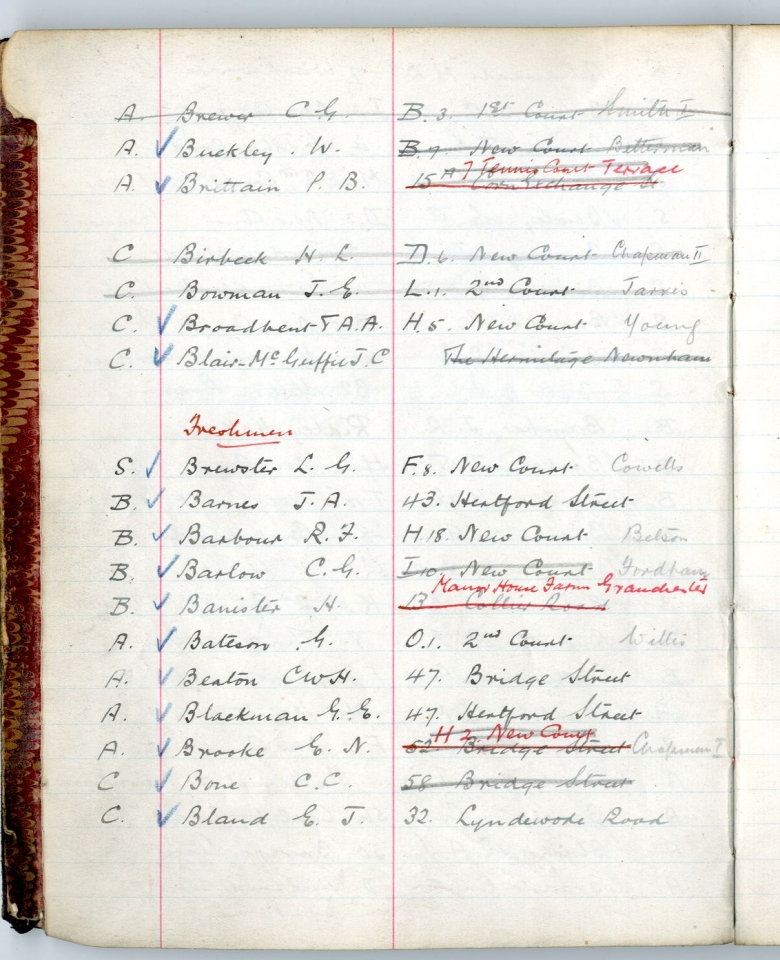 A. Brewer C. G. B. 3. 1st Court Smith I
A. Buckley W. B. 9. New Court Betterman
7 Tennis Court Terrace
A. Brittain P. B. 15 A Corn Exchange St
C. Birbeck H. L. D. 6. New Court Chapman II
C. Bowman J. E. L. 1. 2nd Court Jarvis
C. Broadbent T A. A. H. 5. New Court Young
C. Blair-McGuffie J. C The Hermitage Newnham
Freshmen
S. Brewster L. G. F. 8. New Court Cowells
B. Barnes J. A. 43. Hertford Street
B. Barbour R. F. H. 18. New Court Belson
B. Barlow C. G. I 10. New Court Fordham
Manor House Farm Granchester
B. Banister H. 13 Collier Road
A. Bateson G. O. 1. 2nd Court Willis
A. Beaton C W H. 47. Bridge Street
A. Blackman G. E. 47. Hertford Street
H 2. New Court
A. Brooke E. N. 52 Bridge Street Chapman I
C Bone C. C. 58 Bridge Street
C. Bland E. J. 32. Lyndewode Road